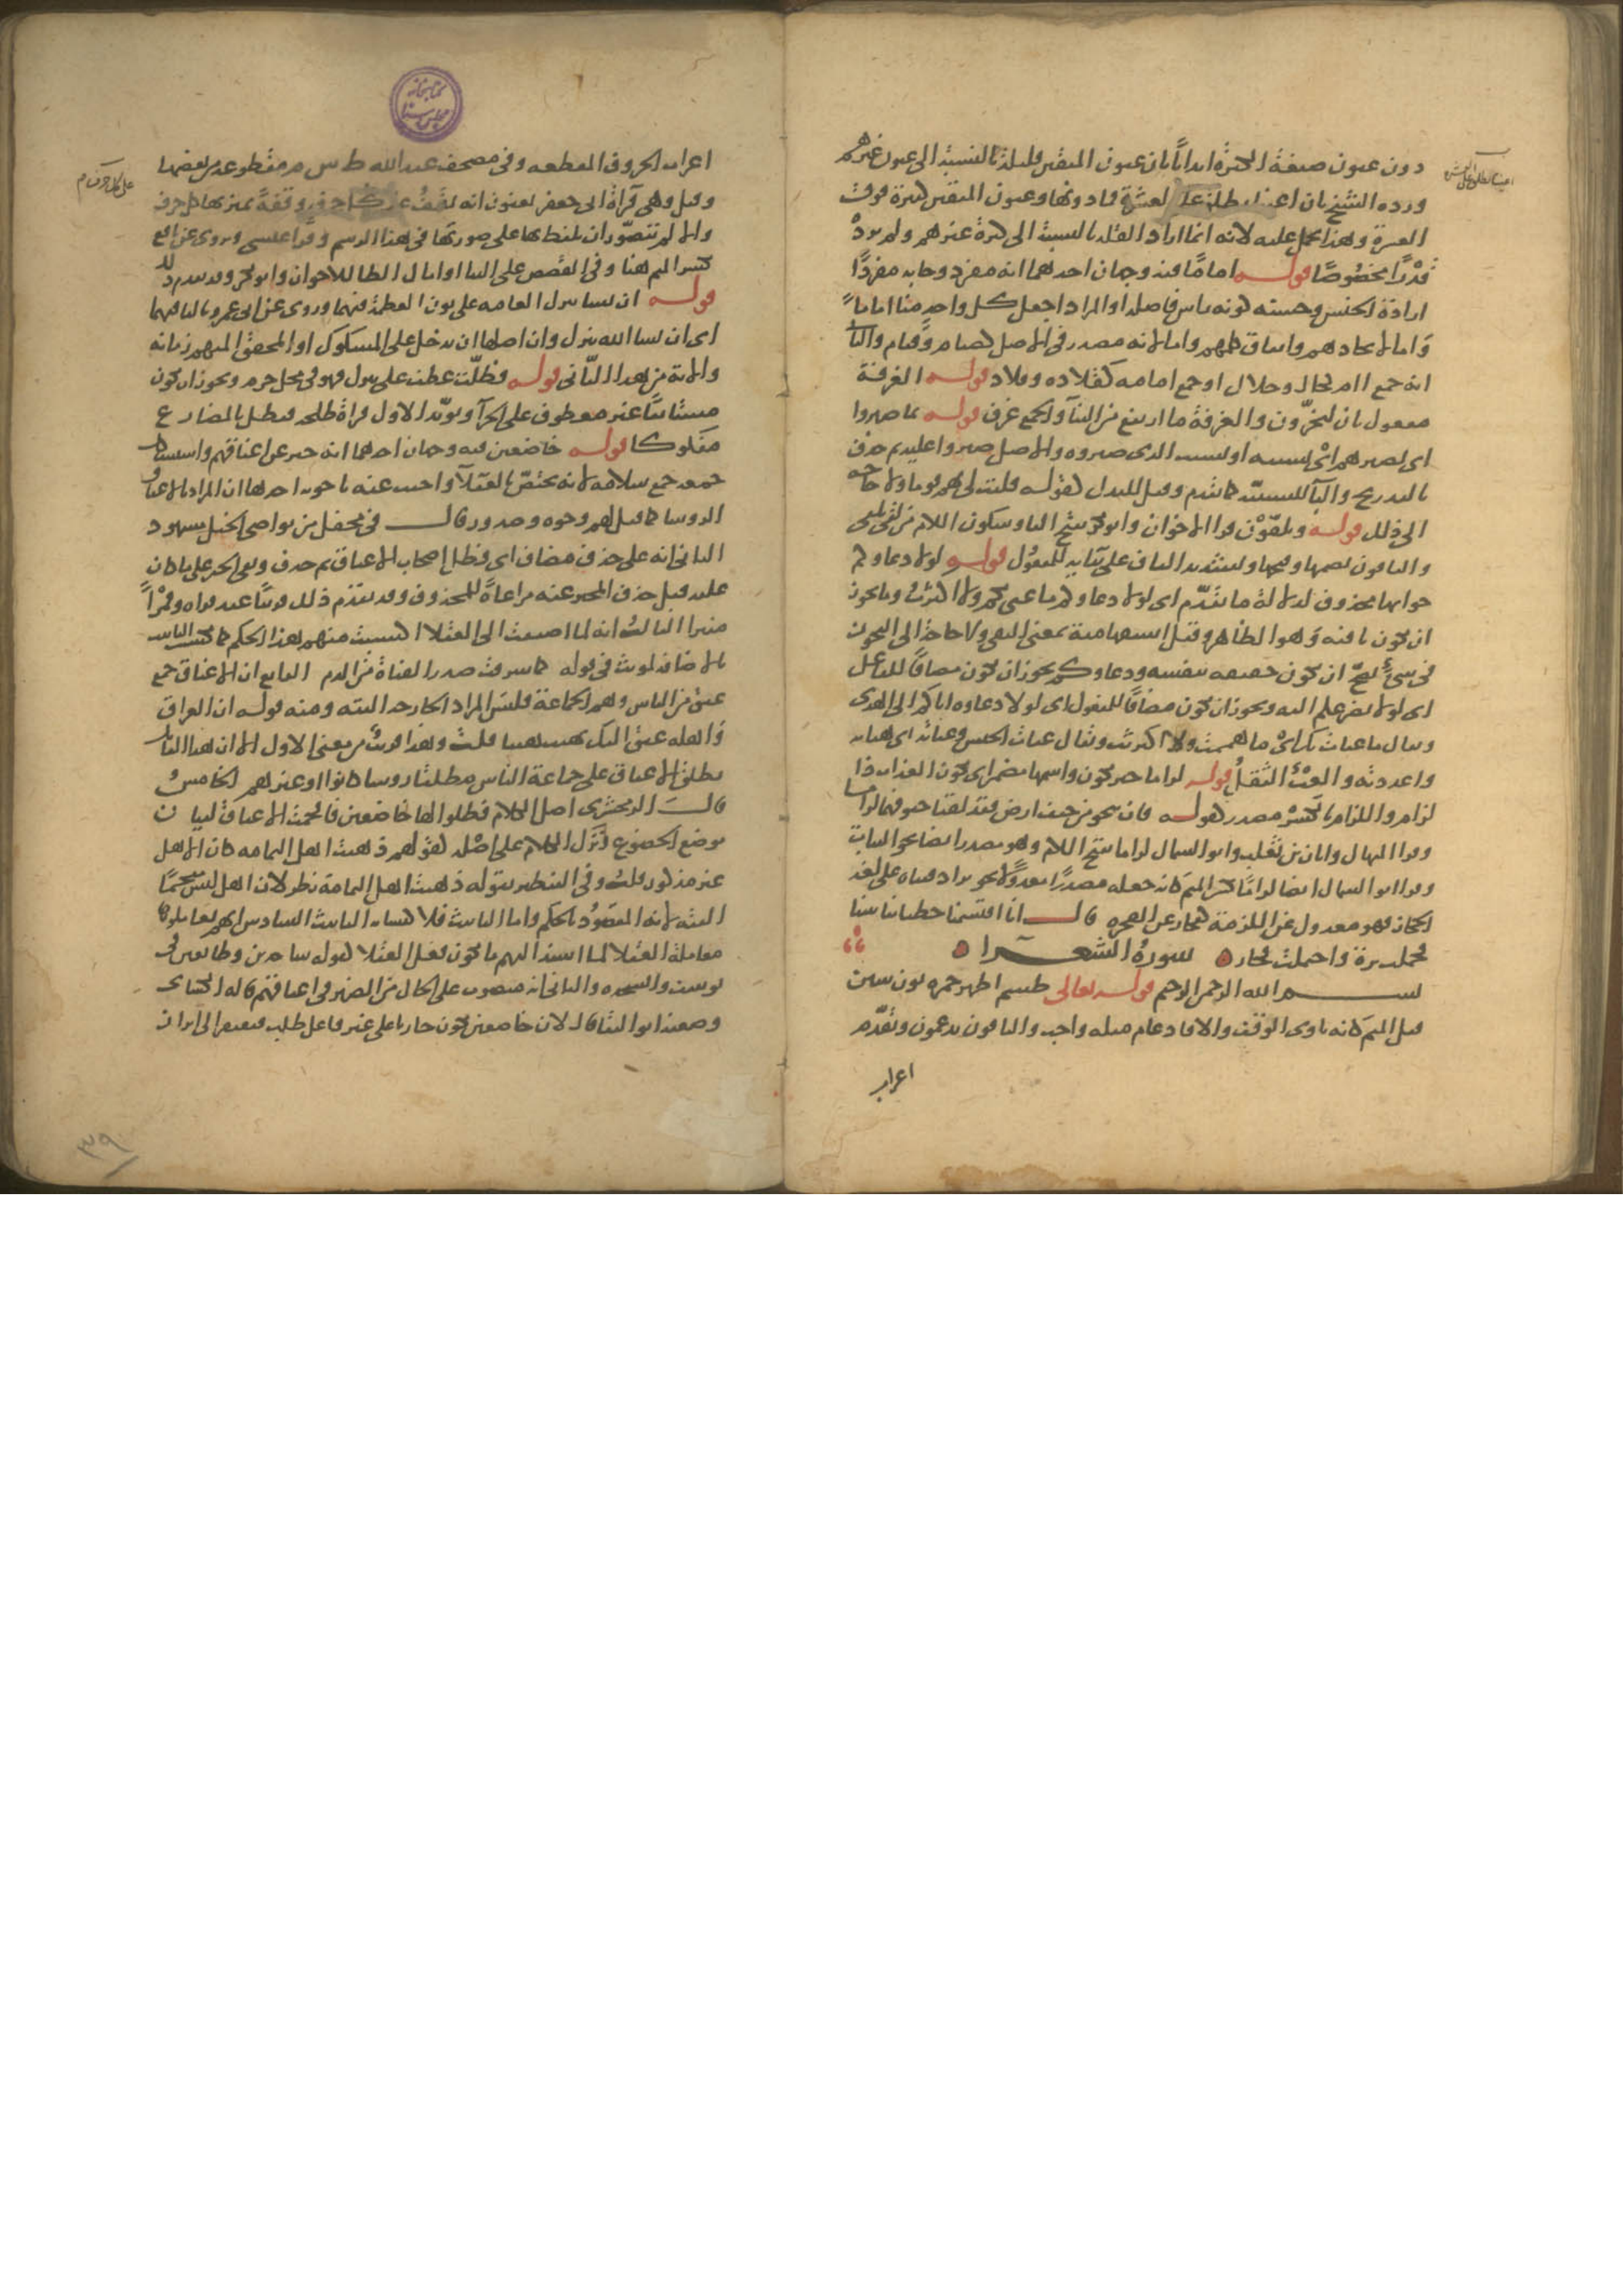 دون عيون صيغة الكثرة ايذانا بان عيون المتقين قليلة بالنسبة الى عيون غيرهم
ورده الشيخ بان اعينا يطلق على العشرة فما دونها وعيون المتقين كثيرة فوق
العشرة وهذا تحمل عليه لانه انما اراد القلة بالنسبة الى كثرة غيرهم ولم يرد
قدرًا مخصوصًا قوله اماما فيه وجهان احدهما انه مفرد وجا به مفردًا
ارادة للجنس وحسنه كونه راس فاصلة او المراد اجعل كل واحد منا اماما
واما لاتحادهم واتفاق كلمتهم واما لانه مصدر في الاصل كصيام وقيام والثاني
انه جمع ام كحال وحلال او جمع امامه كقلاده وقلاد قوله الغرفة
مفعول ثان ليجزون والغرفة ما ارتفع من البناء والجمع غرف قوله بما صبروا
اى بصبرهم اى بسببه او بسبب الذى صبروه والاصل صبروا عليه ثم حذف
بالتدريج والبا للسببية كما تقدم وقيل للبدل كقوله فليت لى بهم قوما ولا حاجه
الى ذلك قوله ويلقون قرا الاخوان وابو بكر بفتح اليا وسكون اللام من لقى يلقى
والباقون بضمها وفتحها وتشديد القاف على بنايه للمفعول قوله لولا دعاوكم
جوابها محذوف لدلالة ما تقدم اى لولا دعاوكم ما عبى بكم ولا اكترث وما يجوز
ان تكون نافية وهو الظاهر وقيل استفهامية بمعنى النفى ولا حاجة الى التجوز
فى شئ يصح ان يكون حقيقه بنفسه ودعاوكم يجوز ان يكون مضافًا للفاعل
اى لولا تضرعكم اليه ويجوز ان يكون مضافًا للمفعول اى لولا دعاوه اياكم الى الهدى
ويقال ما عبات بك اى ما هممت ولا اكترثت ويقال عبات الجيش وعباته اى هياته
واعددته والعبء الثقل قوله لزاما خبر يكون واسمها مضمر اى يكون العذاب ذا
لزام واللزام بالكسر مصدر كقوله فان ينجو من حتف ارض فقد لقيا حتوفهما لزاما
وقرا المنهال وابان بن تغلب وابو السمال لزاما بفتح اللام وهو مصدر ايضا نحو الثبات
وقرا ابو السمال ايضا لزام بكسر الميم كانه جعله مصدرًا معدولًا نحو بداد فبناه على لغة
الحجاز فهو معدول عن اللزمة كفجار عن الفجره قال انا اقتسمنا خطتينا بيننا
فحملت برة واحتملت فجار سورة الشعرا
بسم الله الرحمن الرحيم قوله تعالى طسم اظهر حمزه نون سين
قبل الميم كانه ناوى الوقف والا فادغام مثله واجب والباقون يدغمون وتقدم
اعراب
اعراب الحروف المقطعه وفى مصحف عبد الله ط س م مقطوعه من بعضها
وقيل وهى قراة ابى جعفر يعنون انه يقف على كل حرف وقفة يميز بها كل حرف
على كل حرف م
والا لم يتصور ان يلفظ بها على صورتها فى هذا الرسم وقرا عيسى وتروى عن نافع
بكسر الميم هنا وفى القصص على البنا وامال الطا للاخوان وابو بكر وقد تقدم ذلك
قوله ان نشا ننزل العامه على نون العظمة فيهما وروى عن ابى عمرو باليا فيهما
اى ان يشا الله ينزل وان اصلها ان تدخل على المشكوك او المحقق المبهم زمانه
والايه من هذا الثانى قوله فظلت عطف على ننزل فهو فى محل جزم ويجوز ان يكون
مستانفًا غير معطوف على الجزا ويويد الاول قراة طلحه فتظلل بالمضارع
مفكوكا قوله خاضعين فيه وجهان احدهما انه خبر عن اعناقهم واستشكل
جمعه جمع سلامه لانه مختص بالعقلا واجيب عنه باجوبه احدها ان المراد بالاعناق
الروسا كما قيل لهم وجوه وصدور قال فى محفل من نواصى الخيل مشهود
الثانى انه على حذف مضاف اى فظل اصحاب الاعناق ثم حذف وبقى الخبر على ما كان
عليه قبل حذف المخبر عنه مراعاة للمحذوف وقد تقدم ذلك قريبًا عند قراه وقمرًا
منيرا الثالث انه لما اضيفت الى العقلا اكتسبت منهم هذا الحكم كما يكتسب التانيث
بالاضافه لمونث فى قوله كما شرقت صدر القناة من الدم الرابع ان الاعناق جمع
عنق من الناس وهم الجماعة فليس المراد الجارحه البته ومنه قوله ان العراق
واهله عنق اليك فهيت هيتا قلت وهذا قريب من معنى الاول الا ان هذا القايل
يطلق الاعناق على جماعة الناس مطلقا روسا كانوا او غيرهم الخامس
قال الزمخشرى اصل الكلام فظلوا لها خاضعين فاقحمت الاعناق لبيان
موضع الخضوع وترك الكلام على اصله كقولهم ذهبت اهل اليمامه كان الاهل
غير مذكور قلت وفى التنظير بقوله ذهبت اهل اليمامة نظر لان اهل ليس مقحمًا
البته لانه المقصود بالحكم واما التانيث فلاكتسابه التانيث السادس انهم عوملوا
معاملة العقلا لما اسند اليهم ما يكون فعل العقلا كقوله ساجدين وطايعين فى
يوسف والسجده والثانى انه منصوب على الحال من الضمير فى اعناقهم قاله الكسائى
وضعفه ابو البقا قال لان خاضعين يكون جاريا على غير فاعل ظلت فيفتقر الى ابراز
۳۹